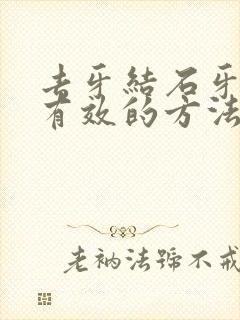 去牙結石牙
有效的方法
老衲法號不戒